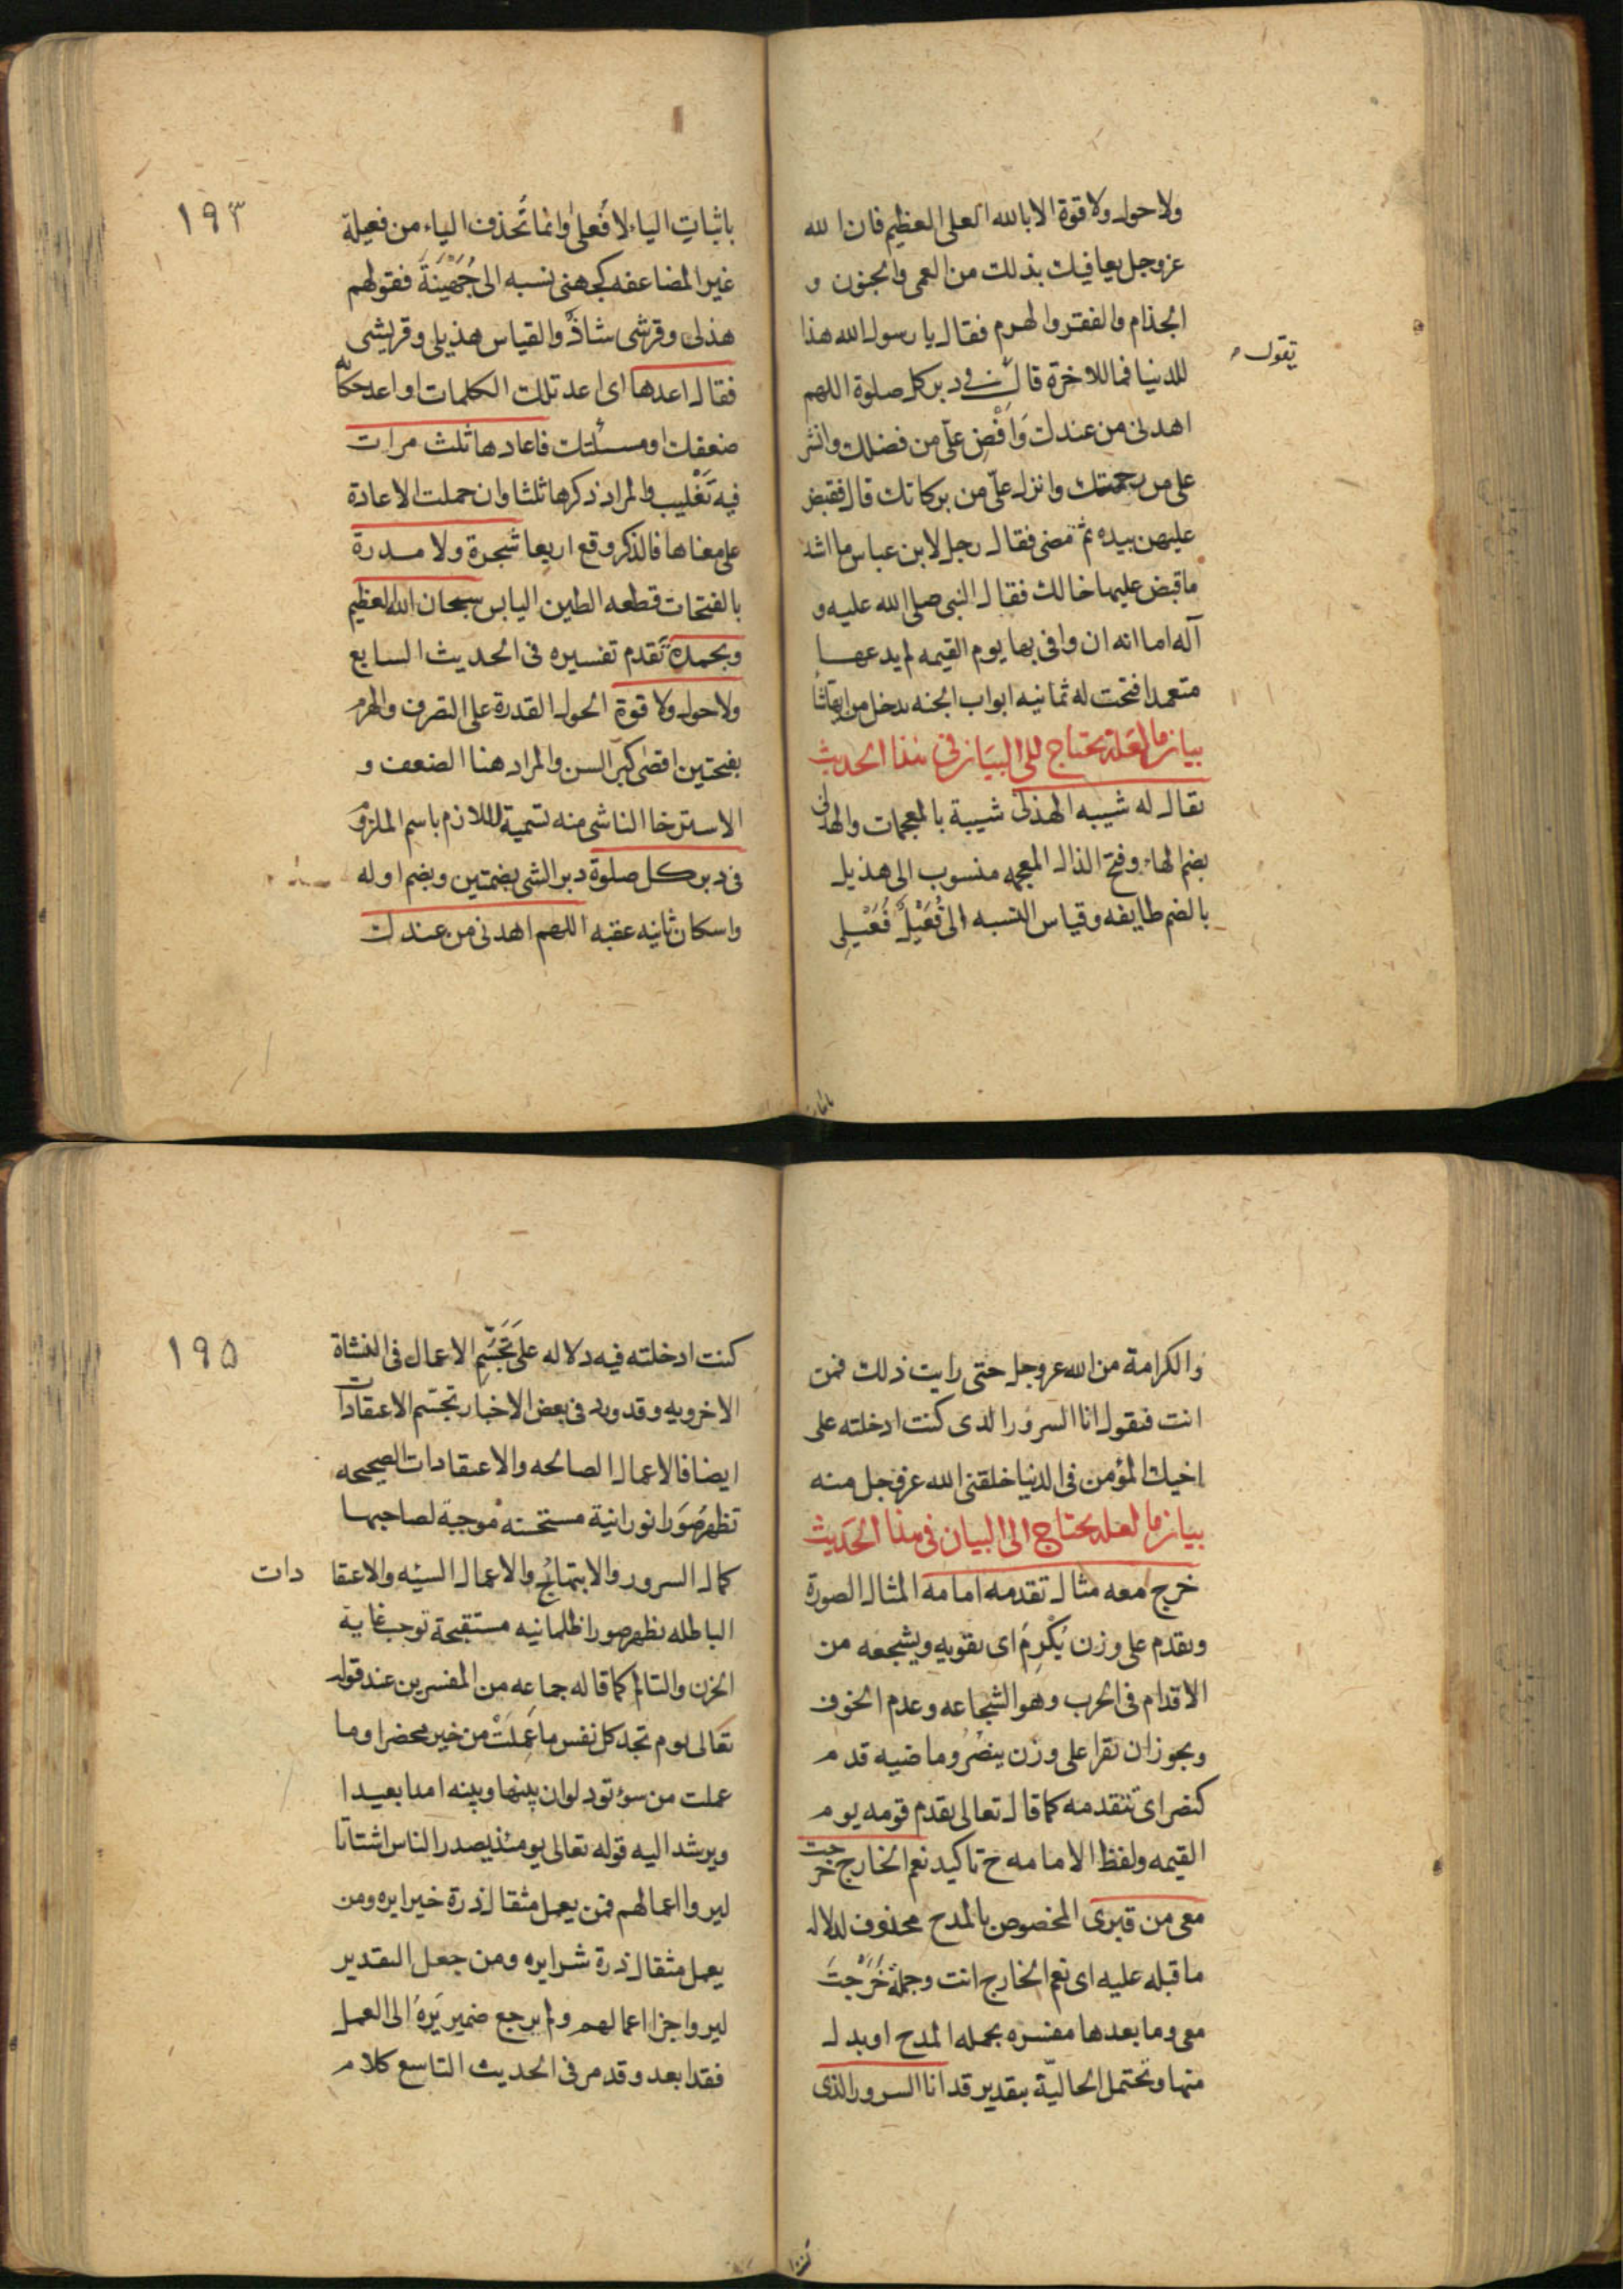 ولاحول ولاقوة الابالله العلى العظيم فان الله
عزوجل يعافيك بذلك من العمى والجنون و
الجذام والفقر والهرم فقال يا رسول الله هذا
للدنيا فما للاخرة قال في دبر كل صلوة اللهم
تقول
اهدنى من عندك وَاَفْضِ علىّ من فضلك وانشر
على من رحمتك وانزل علىّ من بركاتك قال فقبض
عليهن بيده ثم مضى فقال رجل لابن عباس ما اشد
ما قبض عليها خالك فقال النبى صلى الله عليه و
آله اما انه ان وافى بها يوم القيمه لم يدعها
متعمدا فتحت له ثمانيه ابواب الجنه يدخل من ايها شا
بيان ما لعله يحتاج الى البيان فى هذا الحديث
يقال له شيبه الهذلى شيبة بالمعجمات والهذلى
بضم الهاء وفتح الذال المعجمه منسوب الى هذيل
بالضم طايفه وقياس النسبه الى فُعَيْل فُعَيْلى
باثبات
١٩٣
باثباتِ الياء لا فُعلى وانما تُحذف الياء من فعيلة
غير المضاعفه كجهنى نسبه الى جُهَيْنَةَ فقولهم
هذلى وقرشى شاذٌ والقياس هذيلى وقريشى
فقال اعدها اى اعد تلك الكلمات او اعد حكاية
ضعفك او مسئلتك فاعادها ثلث مرات
فيه تَغْليب والمراد ذكرها ثلثا وان حملت الاعادة
على معناها فالذكر وقع اربعا شجرة ولا مدرة
بالفتحات قطعه الطين اليابس سبحان الله العظيم
وبحمده تقدم تفسيره فى الحديث السابع
ولاحول ولا قوة الحول القدرة على التصرف والهرم
بفتحتين اقصى كبر السن والمراد هنا الضعف و
الاسترخا الناشى منه تسمية للازم باسم الملزوم
فى دبر كل صلوة دبر الشى بضمتين وبضم اوله
واسكان ثانيه عقبه اللهم اهدنى من عندك
والكرامة من الله عزوجل حتى رايت ذلك فمن
انت فيقول انا السرور الذى كنت ادخلته على
اخيك المؤمن فى الدنيا خلقنى الله عزوجل منه
بيان ما لعله يحتاج الى البيان فى هذا الحديث
خرج معه مثال تقدمه امامه المثال الصورة
ويقدم على وزن يُكْرِمُ اى يقويه ويشجعه من
الاقدام فى الحرب وهو الشجاعه وعدم الخوف
ويجوز ان يقرا على وزن ينصُرُ وماضيه قدم
كنصر اى تتقدمه كما قال تعالى يقدم قومه يوم
القيمه ولفظ الامامه ح تاكيد نعم الخارج خرجت
معى من قبرى المخصوص بالمدح محذوف لدلاله
ما قبله عليه اى نعم الخارج انت وجملة خَرَجْتَ
معى وما بعدها مفسره بجمله المدح او بدل
منها وتحتمل الحاليّة بتقدير قد انا السرور الذى
كنت
١٩٥
كنت ادخلته فيه دلاله على تَجَسُّم الاعمال فى النشاة
الاخرويه وقد ورد فى بعض الاخبار تجسّم الاعتقادات
ايضا فالاعمال الصالحه والاعتقادات الصحيحه
تظهر صُوَرا نورانية مستحسنه موجبة لصاحبها
كمال السرور والابتهاج والاعمال السيئه والاعتقادات
الباطله تظهر صورا ظلمانيه مستقبحة توجب غاية
الحزن والتالم كما قاله جماعه من المفسرين عند قوله
تعالى يوم تجد كل نفس ما عَمِلَتْ من خير محضرا وما
عملت من سوء تود لو ان بينها وبينه امدا بعيدا
ويرشد اليه قوله تعالى يومئذ يصدر الناس اشتاتا
ليروا اعمالهم فمن يعمل مثقال ذرة خيرا يره ومن
يعمل مثقال ذرة شرا يره ومن جعل التقدير
ليروا جزا اعمالهم ولم يرجع ضمير يَرَهُ الى العمل
فقد ابعد وقد مر فى الحديث التاسع كلام